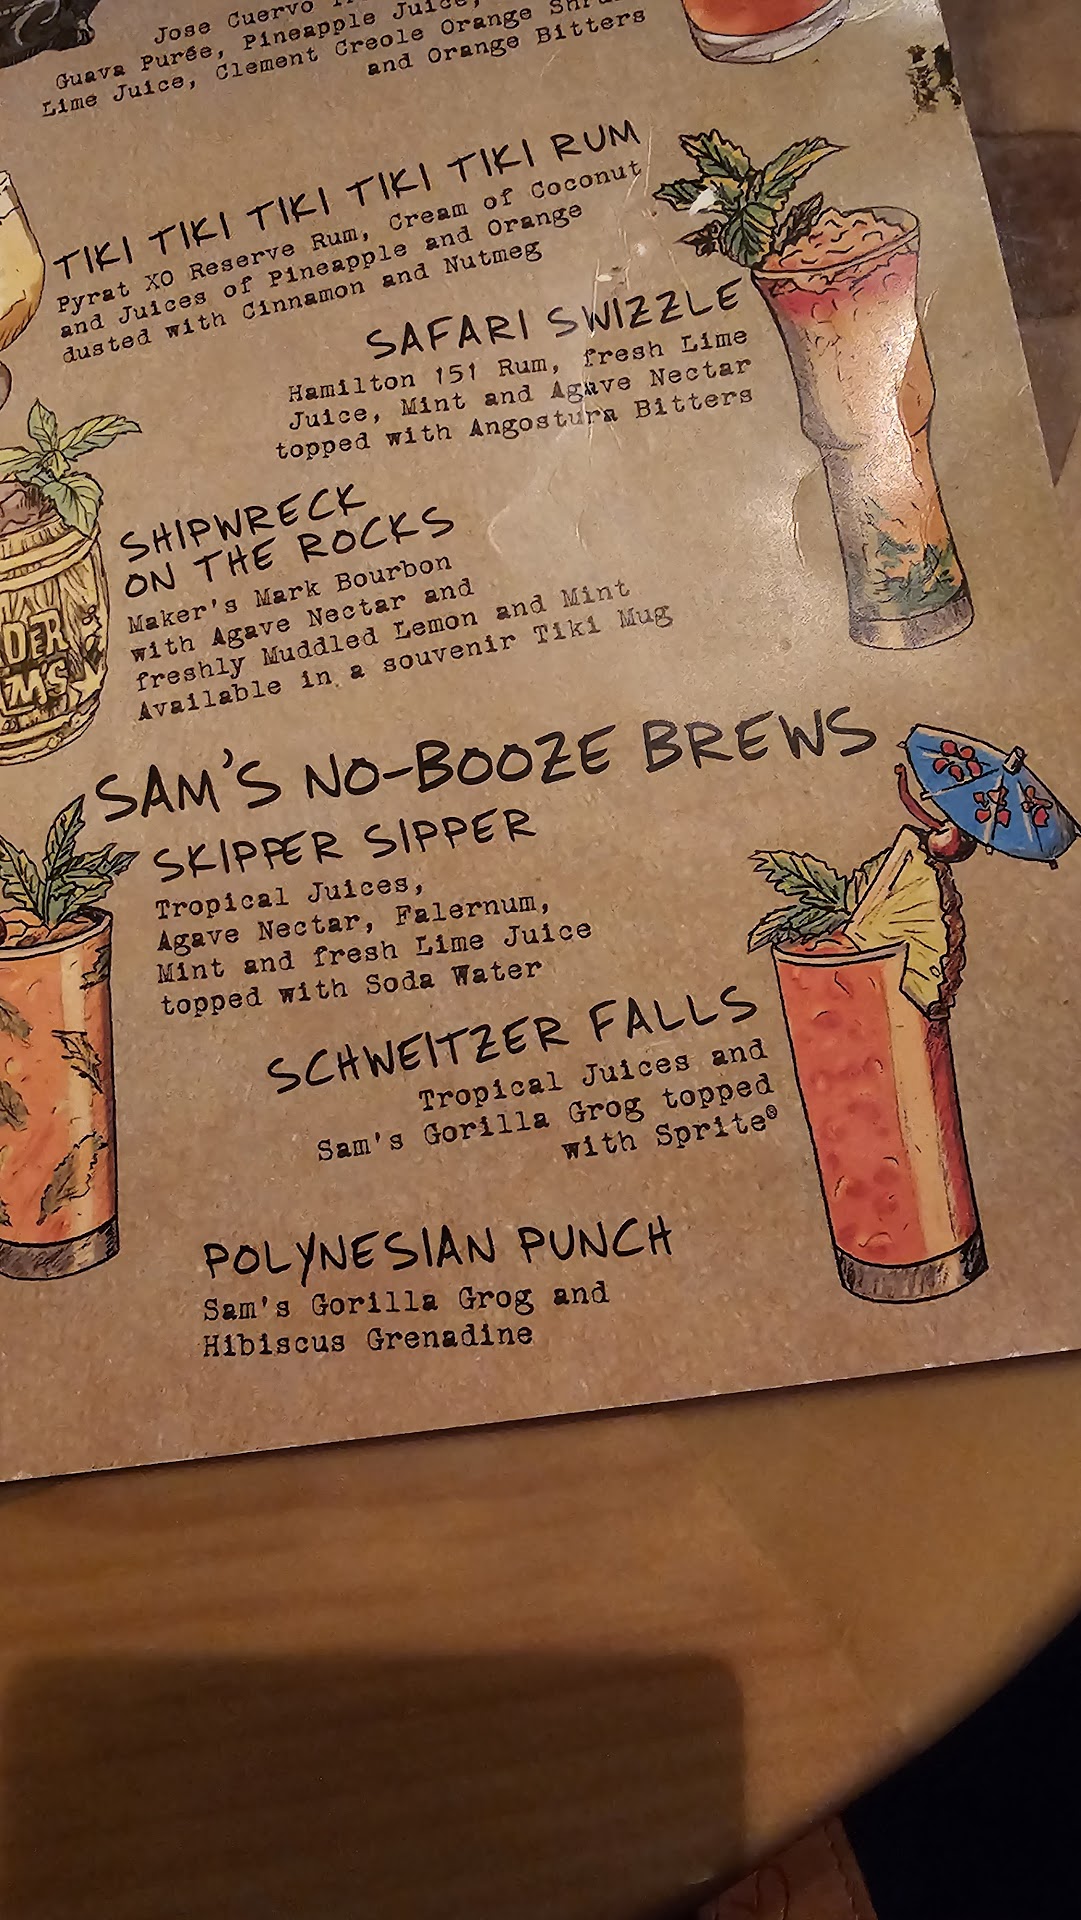 Jose Cuervo
Guava Purée, Pineapple Juice,
Lime Juice, Clement Creole Orange
and Orange Bitters
TIKI TIKI TIKI TIKI TIKI RUM
Pyrat XO Reserve Rum, Cream of Coconut
and Juices of Pineapple and Orange
dusted with Cinnamon and Nutmeg
SAFARI SWIZZLE
Hamilton 151 Rum, fresh Lime
Juice, Mint and Agave Nectar
topped with Angostura Bitters
SHIPWRECK
ON THE ROCKS
Maker's Mark Bourbon
with Agave Nectar and
freshly Muddled Lemon and Mint
Available in a souvenir Tiki Mug
SAM'S NO-BOOZE BREWS
SKIPPER SIPPER
Tropical Juices,
Agave Nectar, Falernum,
Mint and fresh Lime Juice
topped with Soda Water
SCHWEITZER FALLS
Tropical Juices and
Sam's Gorilla Grog topped
with Sprite®
POLYNESIAN PUNCH
Sam's Gorilla Grog and
Hibiscus Grenadine